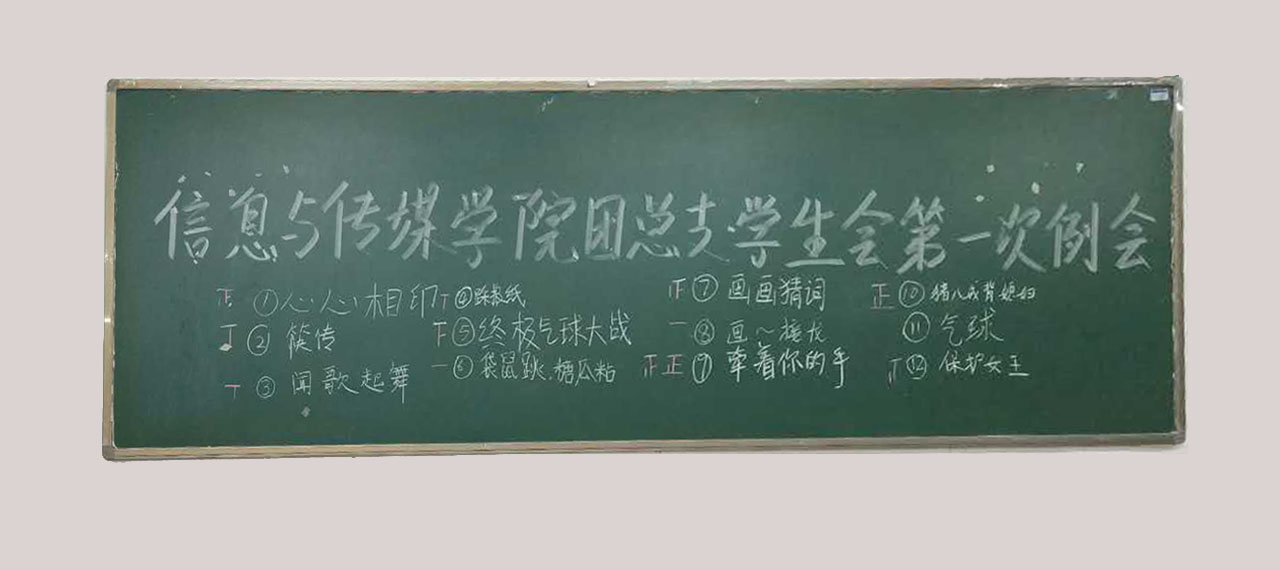 信息与传媒学院团总支·学生会第一次例会
①心心相印
②筷传
③闻歌起舞
④踩报纸
⑤终极气球大战
⑥袋鼠跳、糖瓜粘
正⑦画画猜词
一⑧画~接龙
正正⑨牵着你的手
正⑩猪八戒背媳妇
⑪气球
⑫保护女王